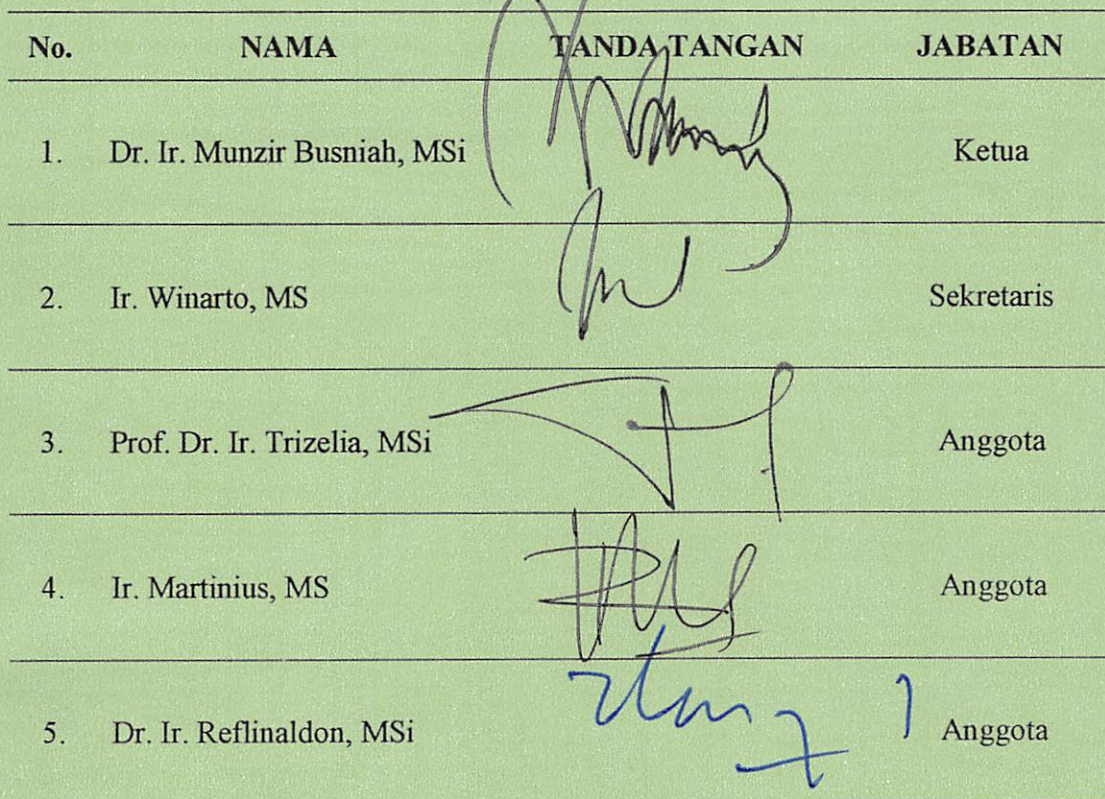 No. NAMA TANDA TANGAN JABATAN
1. Dr. Ir. Munzir Busniah, MSi Ketua
2. Ir. Winarto, MS Sekretaris
3. Prof. Dr. Ir. Trizelia, MSi Anggota
4. Ir. Martinius, MS Anggota
5. Dr. Ir. Reflinaldon, MSi Anggota